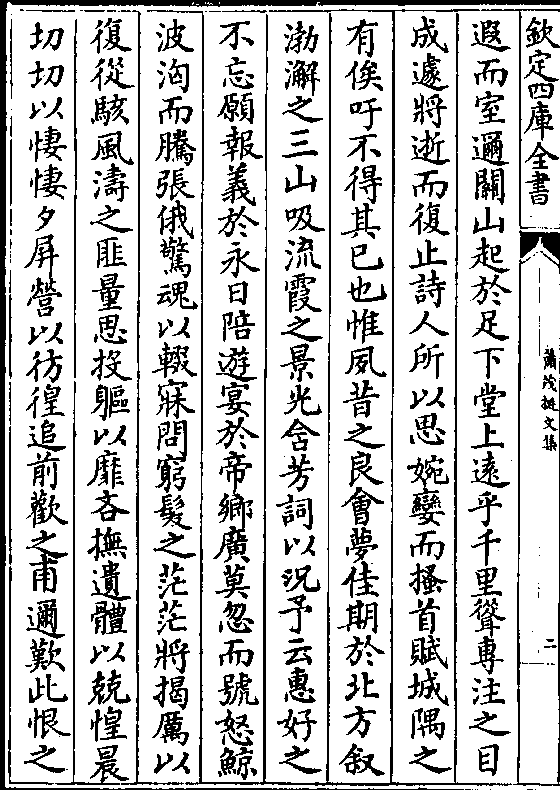 欽定四庫全書
蕭茂挺文集
二
遐而室邇關山起於足下堂上逺乎千里聳專注之目
成遽將逝而復止詩人所以思婉孌而搔首賦城隅之
有俟吁不得其已也惟夙昔之良會夢佳期於北方叙
渤澥之三山吸流霞之景光含芳詞以況予云惠好之
不忘願報義於永日陪遊宴於帝鄉廣莫忽而號怒鯨
波洶而騰張俄驚魂以輟寐問窮髮之茫茫將揭厲以
復從駭風濤之匪量思投軀以靡吝撫遺體以兢惶晨
切切以悽悽夕屏營以彷徨追前歡之甫邇歎此恨之